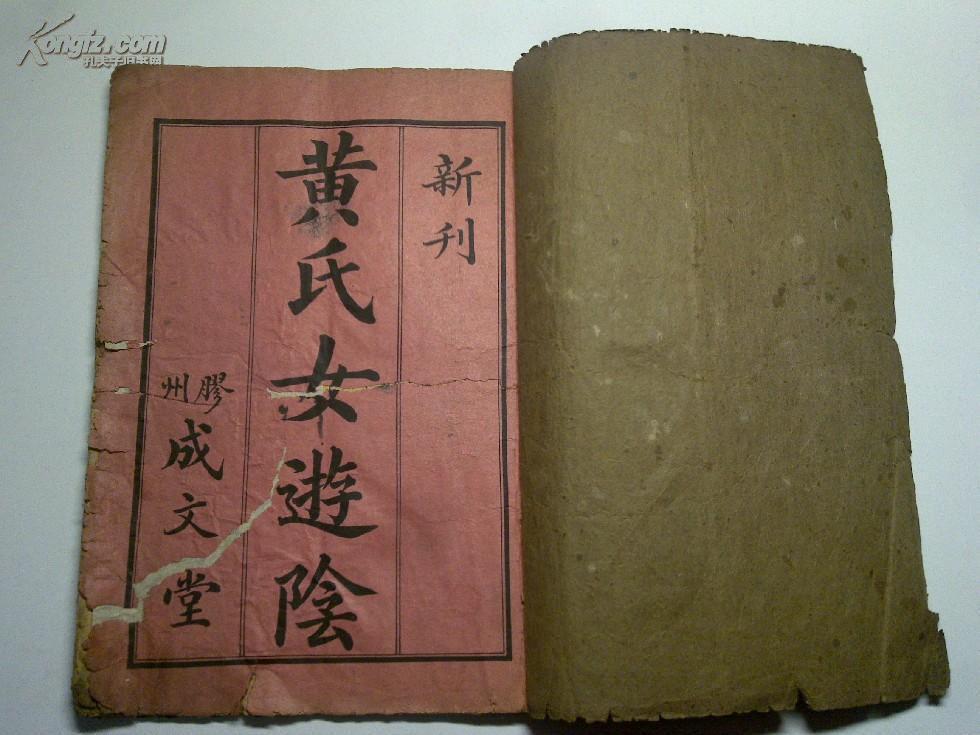 新刊
黄氏女遊陰
膠州
成文堂
Kongfz.com
孔夫子旧书网